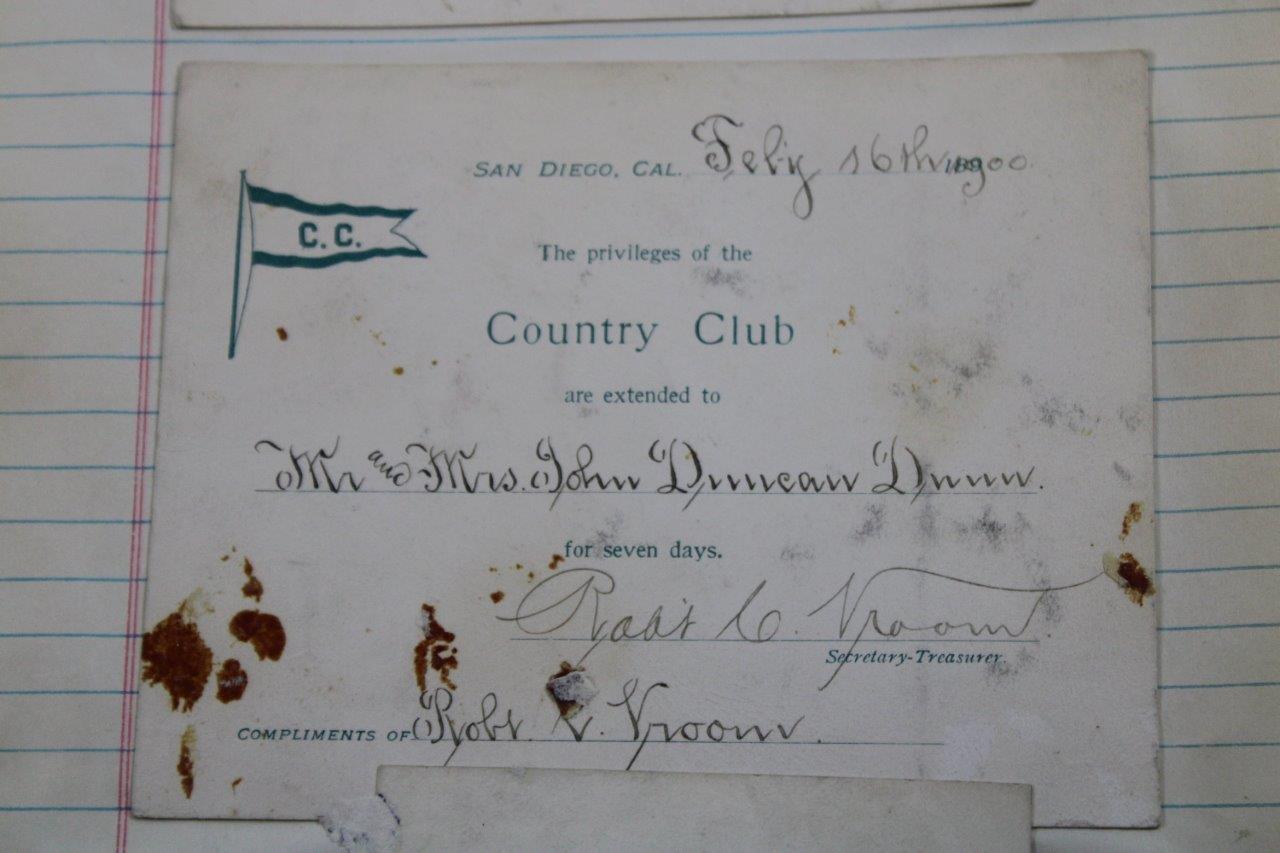 SAN DIEGO, CAL. Feb'y 16th 1900.
C. C.
The privileges of the
Country Club
are extended to
Mr and Mrs. John Duncan Dunn.
for seven days.
Robt C. Vroom.
Secretary-Treasurer.
COMPLIMENTS OF Robt. C. Vroom.